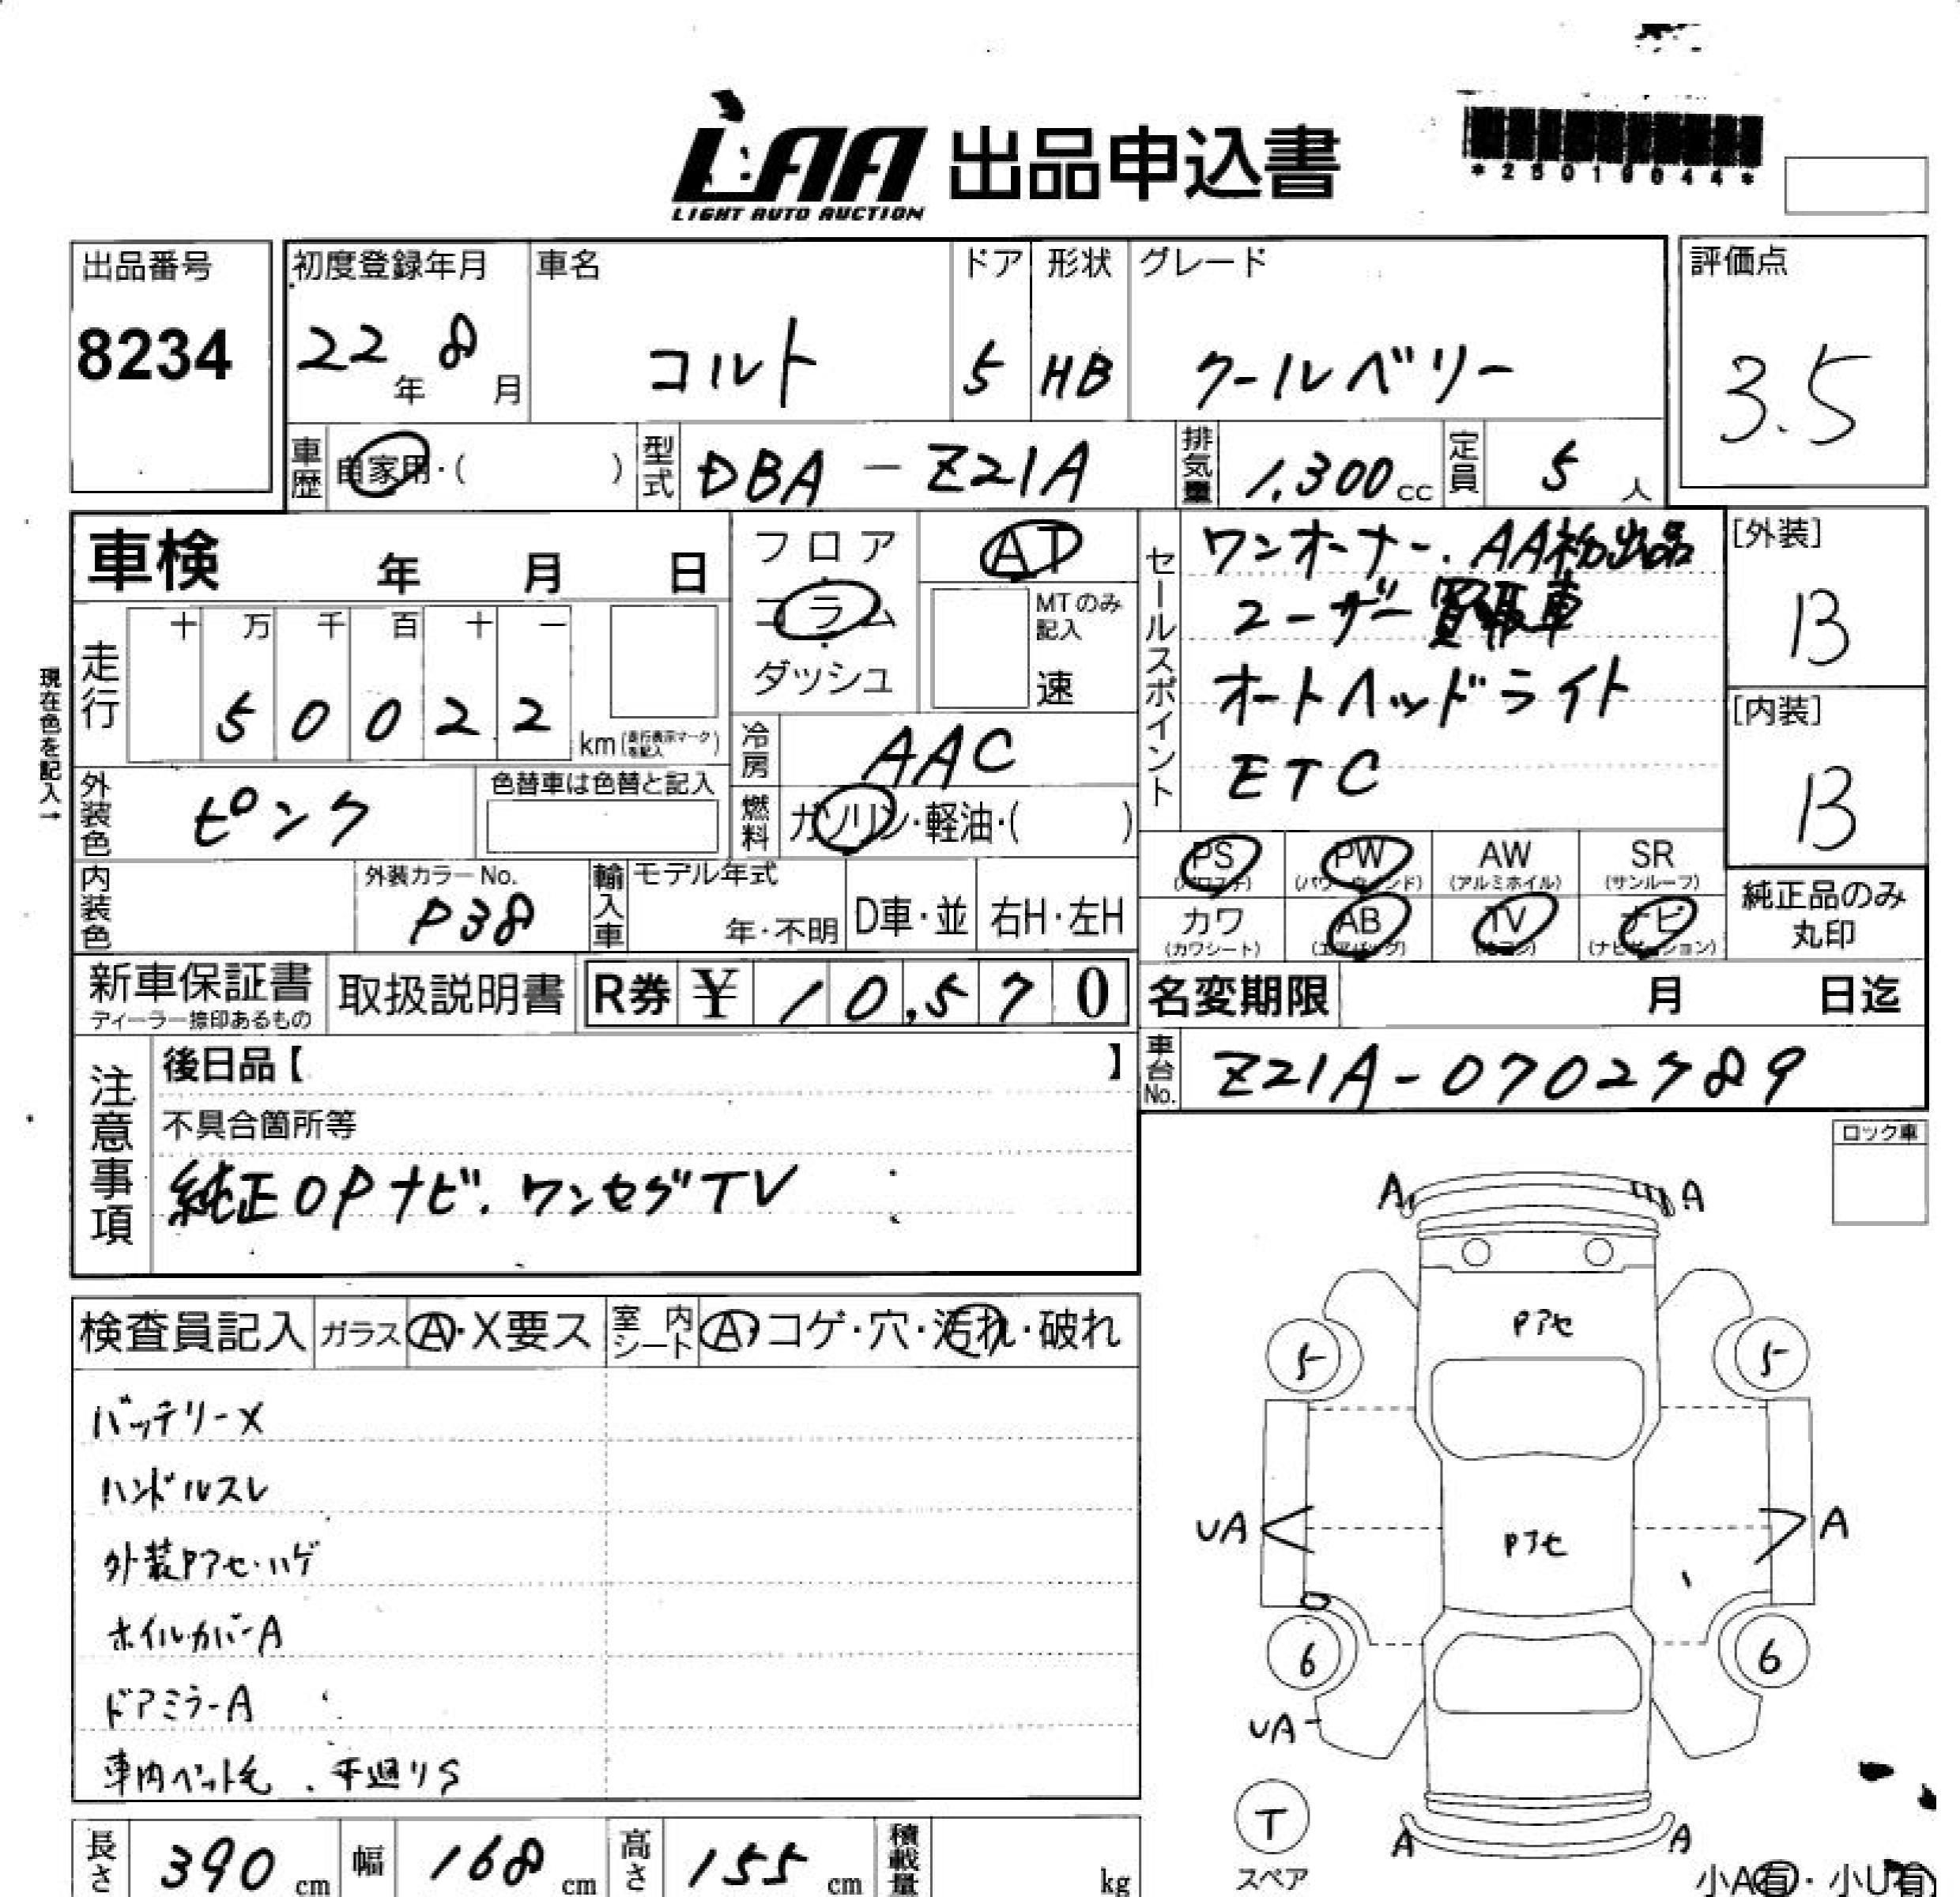 LAA 出品申込書
LIGHT AUTO AUCTION
*25019644*
出品番号
8234
初度登録年月
22年 8月
車名
コルト
ドア
5
形状
HB
グレード
クールベリー
評価点
3.5
車歴 自家用・( )
型式 DBA-Z21A
排気量 1,300cc
定員 5人
車検 年 月 日
フロア
コラム
ダッシュ
AT
MTのみ記入
速
セールスポイント
ワンオーナー. AA初出品
ユーザー買取車
オートヘッドライト
ETC
[外装]
B
[内装]
B
現在色を記入→
走行
十 万 千 百 十 一
5 0 0 2 2
km(走行表示マークを記入)
冷房 AAC
燃料 ガソリン・軽油・( )
外装色 ピンク
色替車は色替と記入
内装色
外装カラーNo.
P38
輸入車
モデル年式
年・不明
D車・並
右H・左H
PS
(パワステ)
PW
(パワーウィンド)
AW
(アルミホイル)
SR
(サンルーフ)
カワ
(カワシート)
AB
(エアバッグ)
TV
ナビ
(ナビゲーション)
純正品のみ
丸印
新車保証書
ディーラー捺印あるもの
取扱説明書
R券 ¥ 10,570
名変期限 月 日迄
車台No. Z21A-0702789
注意事項
後日品【 】
不具合箇所等
純正OPナビ. ワンセグTV
ロック車
検査員記入
ガラス A・X要ス
室内シート A・コゲ・穴・汚れ・破れ
バッテリーX
ハンドルスレ
外装Pアセ・ハゲ
ホイルカバーA
ドアミラーA
車内ペット毛 . 下廻りS
A A
Pアセ
5 5
UA A
Pアセ
6 6
UA
T
スペア
A A
小A有・小U有
長さ 390cm
幅 168cm
高さ 155cm
積載量 kg